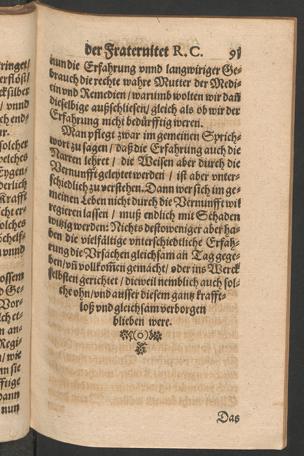 der Fraternitet R. C. 91
nun die Erfahrung vnnd langwiriger Ge-
brauch die rechte wahre Mutter der Medi-
cin vnd Remedien / warumb wolten wir dañ
dieselbige außschliessen / gleich als ob wir der
Erfahrung nicht bedürfftig weren.
Man pflegt zwar im gemeinen Sprich-
wort zu sagen / daß die Erfahrung auch die
Narren lehret / die Weisen aber durch die
Vernunfft geleytet werden / ist aber vnter-
schiedlich zu verstehen. Dann wer sich im ge-
meinen Leben nicht durch die Vernunfft wil
regieren lassen / muß endlich mit Schaden
witzig werden: Nichts destoweniger aber ha-
ben die vielfältige vnterschiedliche Erfah-
rung die Vrsachen gleichsam an Tag gege-
ben / vñ vollkom̃en gemacht / oder ins Werck
selbsten gerichtet / dieweil nemblich auch sol-
che ohn / vnd ausser diesem gantz kraffte-
loß vnd gleichsam verborgen
blieben were.
Das
ringet /
solcher
welches
derlich
Krafft
solches
ossem
Vor-
n an-
Regi-
n sie
dann
nun